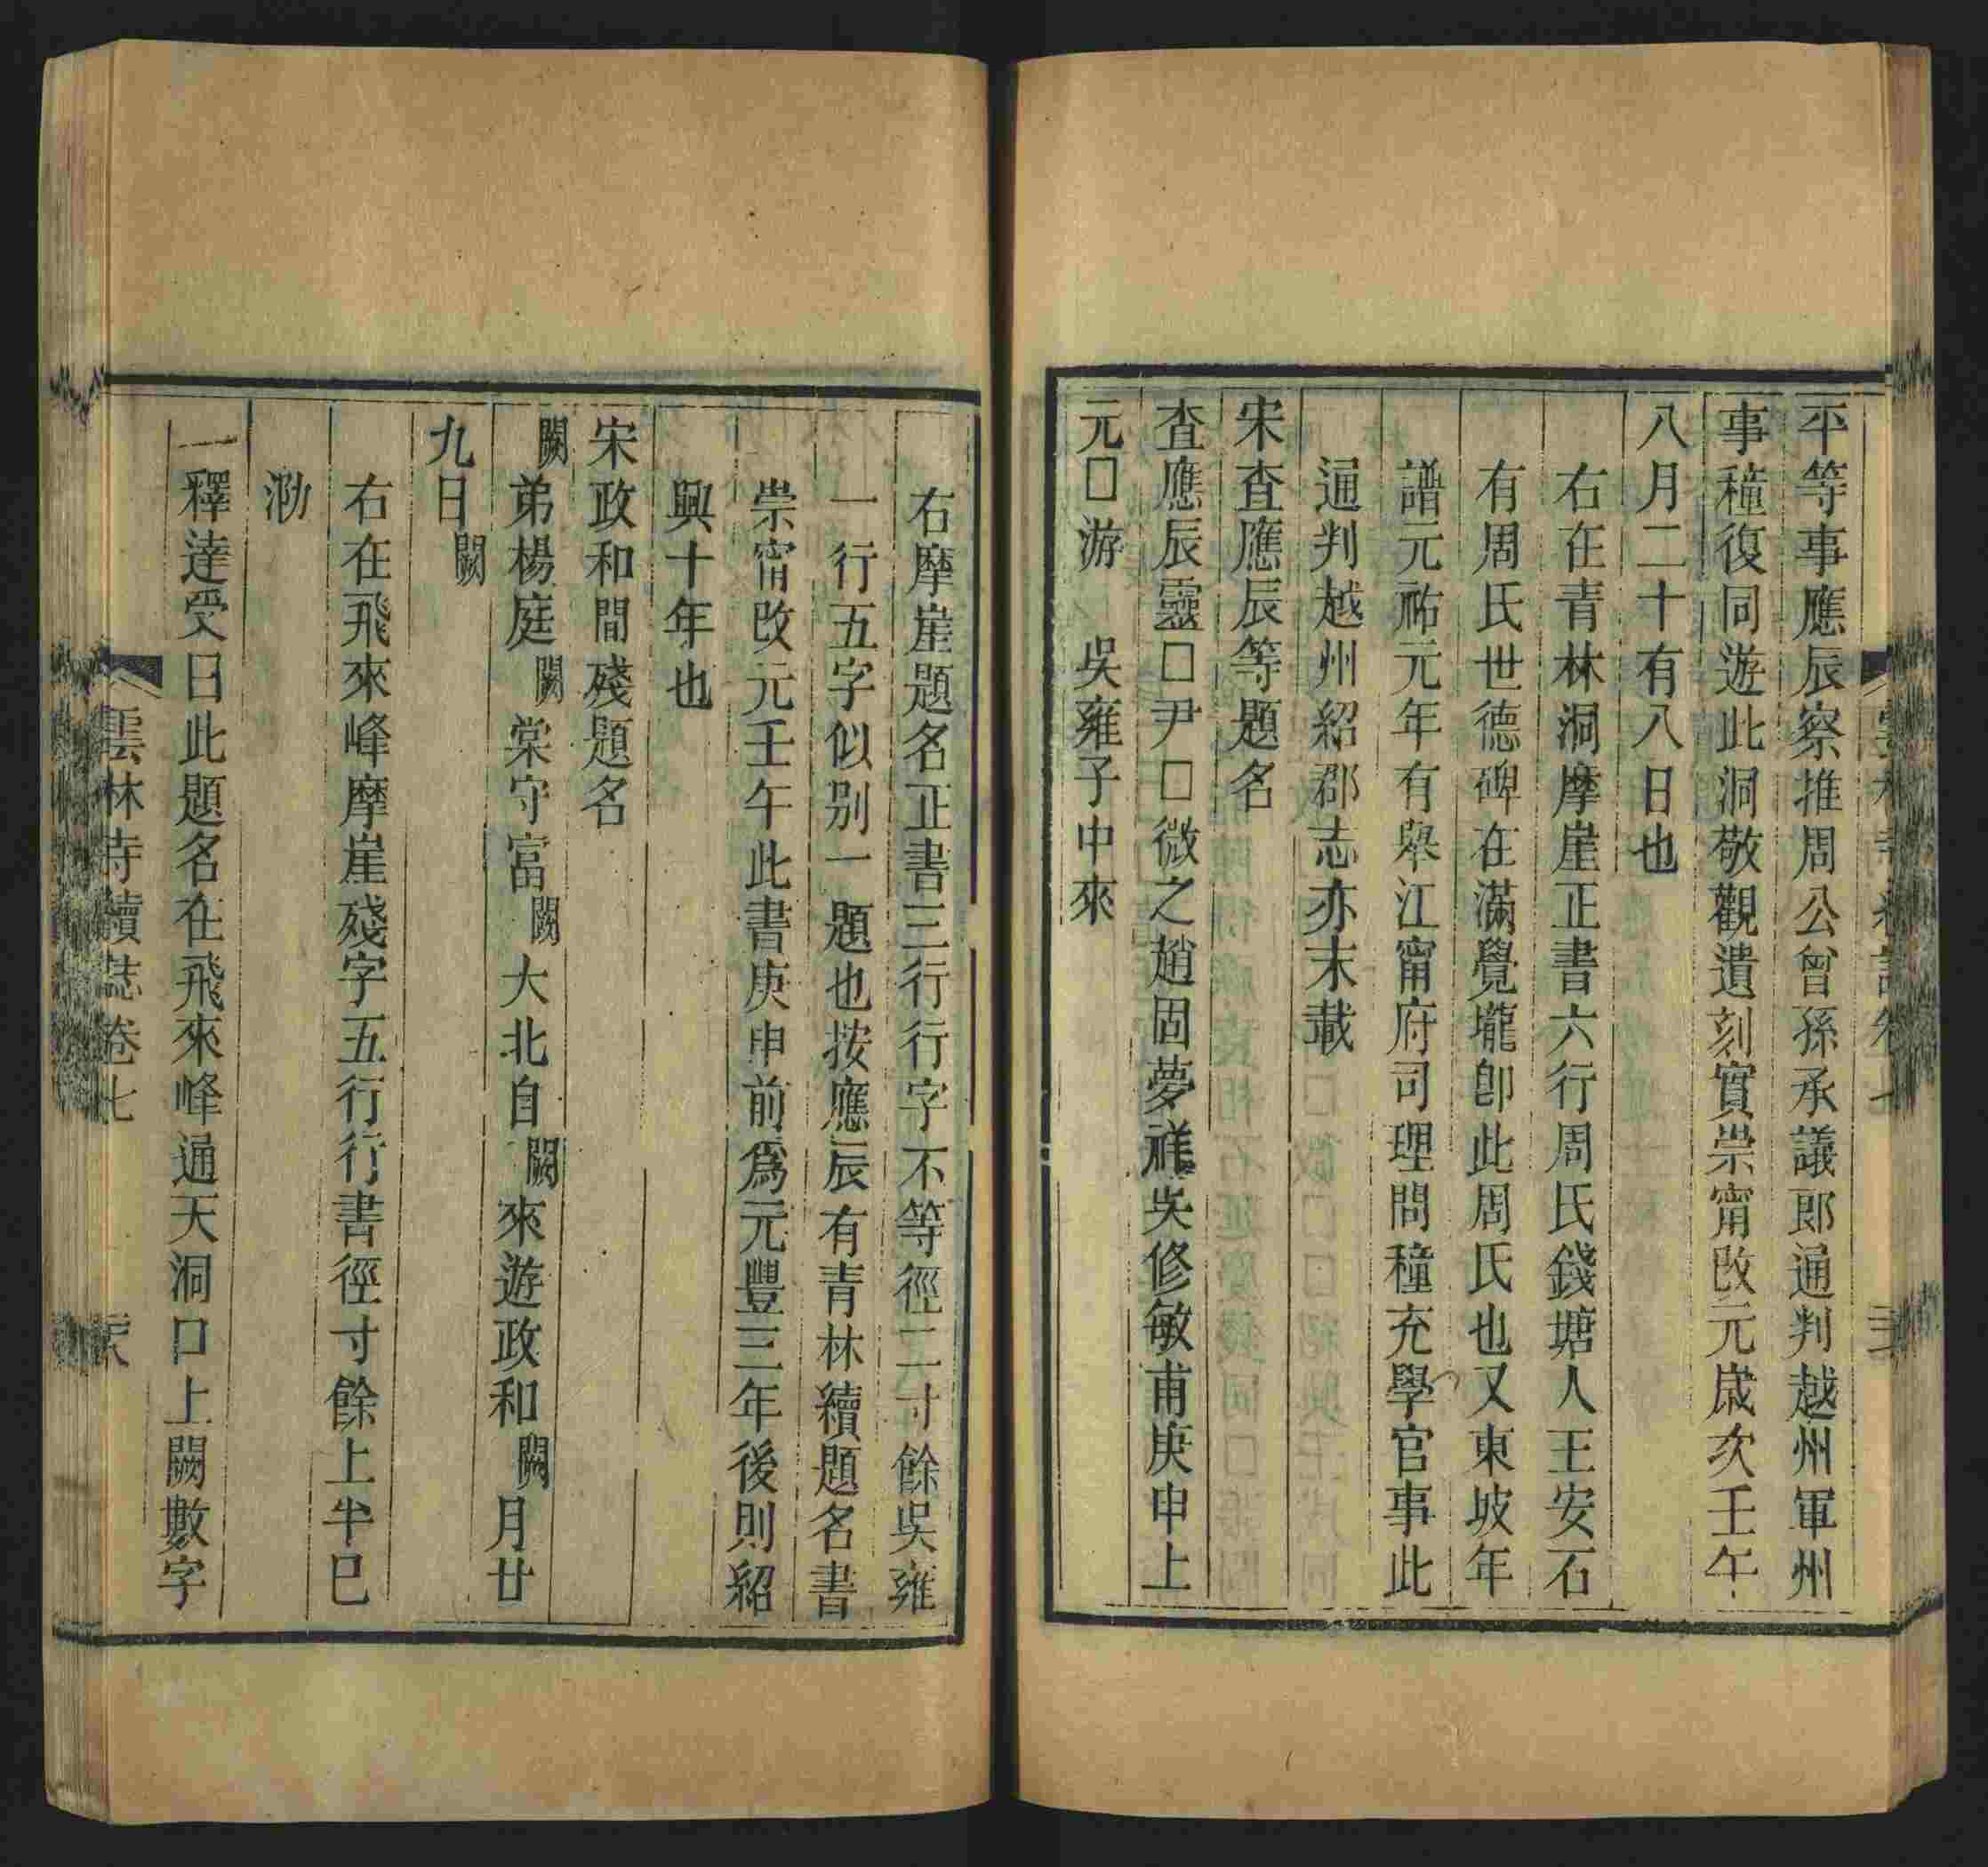 平等事應辰察推周公曾孫承議郎通判越州軍州
事穜復同遊此洞敬觀遺刻實崇甯改元歲次壬午
八月二十有八日也
右在青林洞摩崖正書六行周氏錢塘人王安石
有周氏世德碑在滿覺壠卽此周氏也又東坡年
譜元祐元年有舉江甯府司理問穜充學官事此
通判越州紹郡志亦末載
宋查應辰等題名
查應辰靈□尹□微之趙固夢祥吳修敏甫庚申上
元□游　吳雍子中來
右摩崖題名正書三行行字不等徑二寸餘吳雍
一行五字似别一題也按應辰有青林續題名書
崇甯改元壬午此書庚申前爲元豐三年後則紹
興十年也
宋政和間殘題名
闕弟楊庭闕棠守富闕大北自闕來遊政和闕月廿
九日闕
右在飛來峰摩崖殘字五行行書徑寸餘上半已
泐
一釋達受曰此題名在飛來峰通天洞口上闕數字
雲林寺續誌卷七